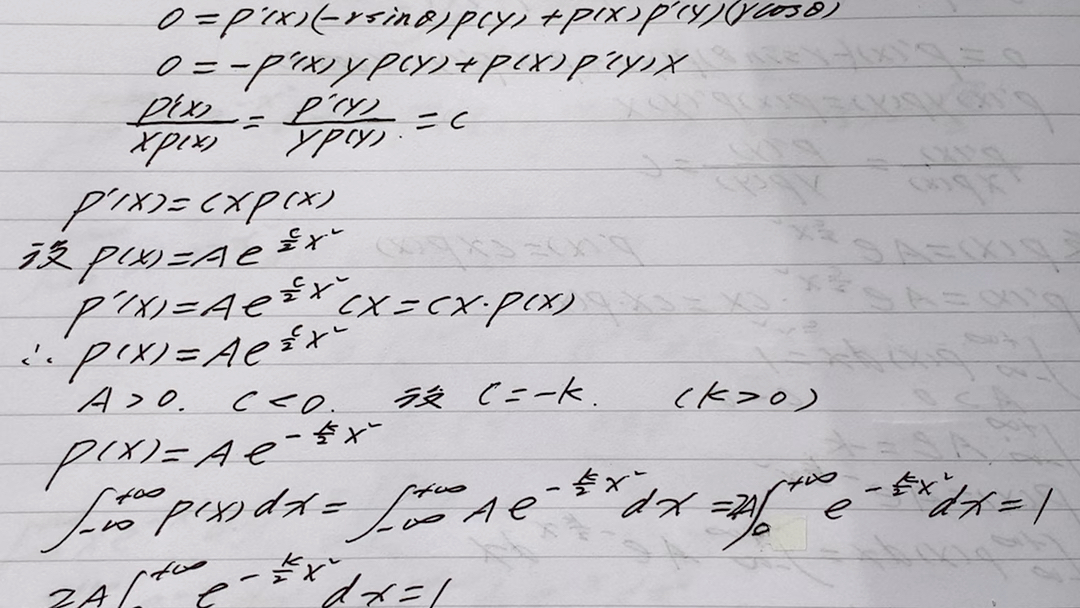 0=p'(x)(-rsinθ)p(y)+p(x)p'(y)(rcosθ)
0=-p'(x)yp(y)+p(x)p'(y)x
p'(x)/xp(x) = p'(y)/yp(y) = c
p'(x)=cxp(x)
设 p(x)=Ae^{c/2 x²}
p'(x)=Ae^{c/2 x²}cx=cx·p(x)
∴ p(x)=Ae^{c/2 x²}
A>0. c<0. 设 c=-k. (k>0)
p(x)=Ae^{-k/2 x²}
∫_{-∞}^{+∞} p(x)dx=∫_{-∞}^{+∞} Ae^{-k/2 x²}dx=2A∫_0^{+∞} e^{-k/2 x²}dx=1
2A∫^{+∞} e^{-k/2 x²}dx=1